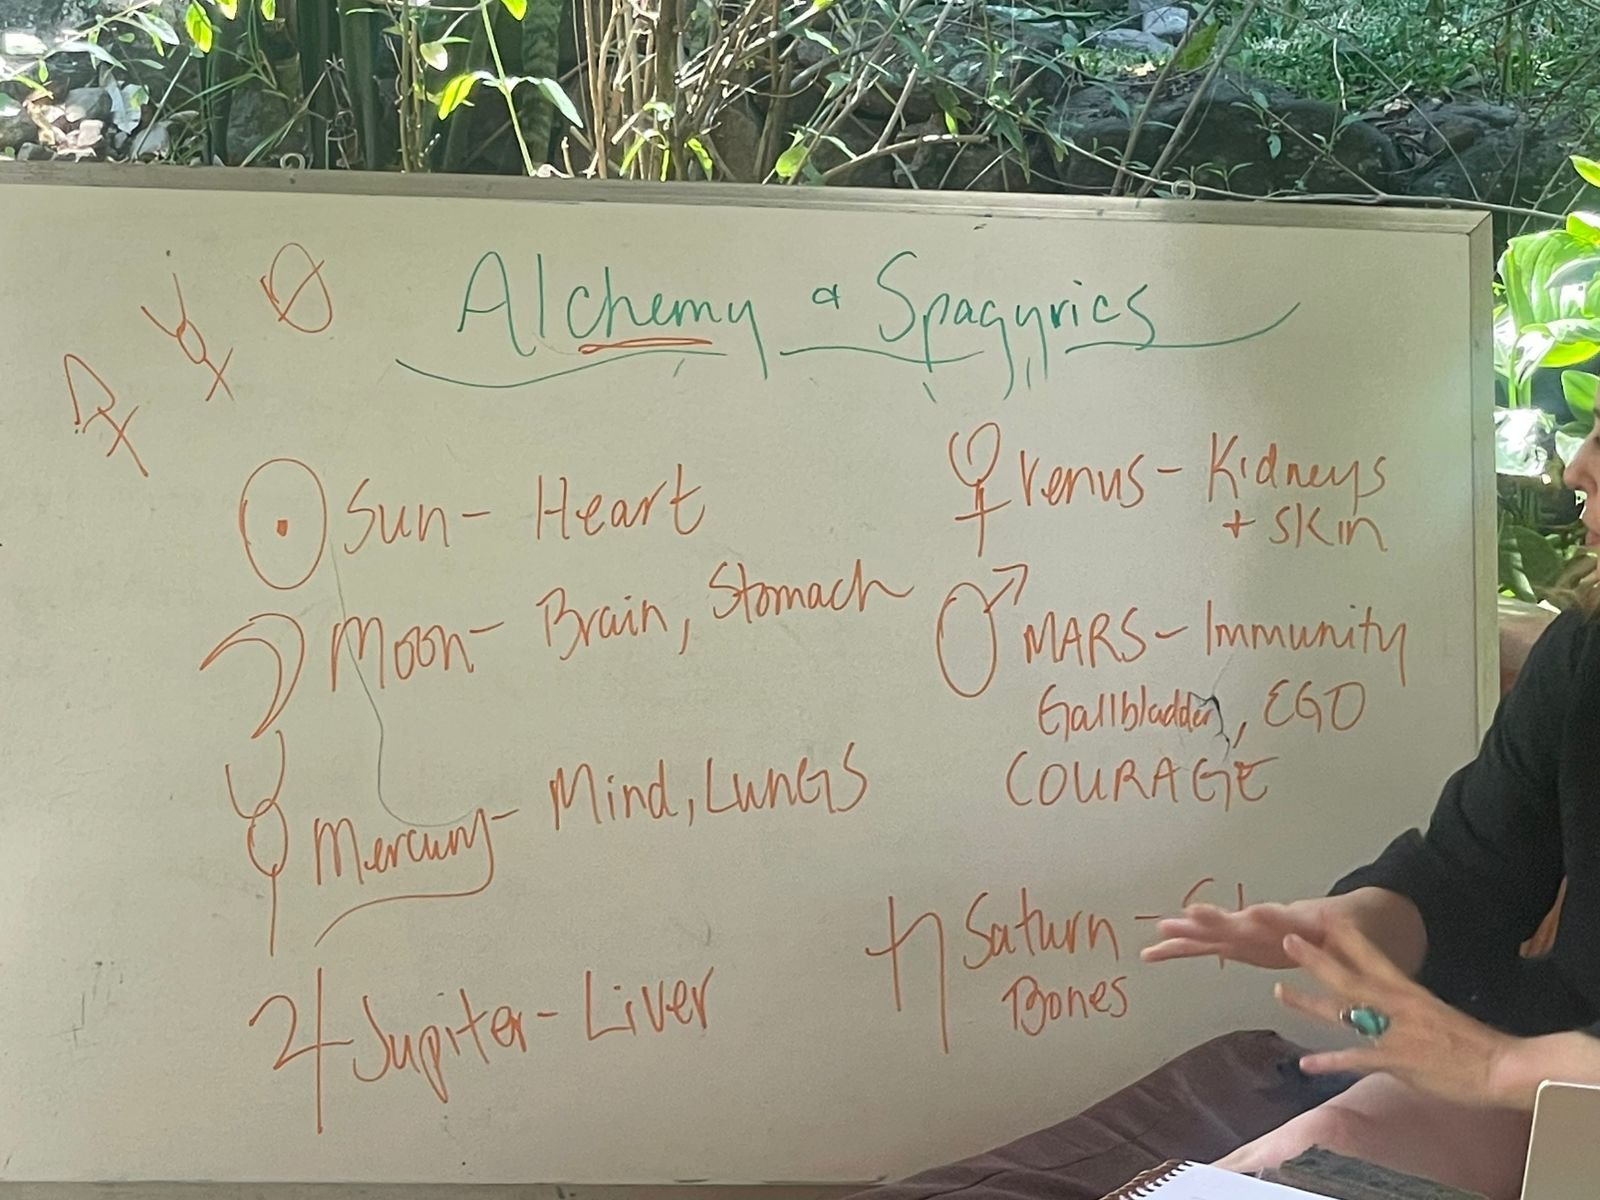 Alchemy & Spagyrics
☉ Sun - Heart
☽ Moon - Brain, Stomach
☿ Mercury - Mind, Lungs
♃ Jupiter - Liver
♀ Venus - Kidneys
+ Skin
♂ MARS - Immunity
Gallbladder, EGO
COURAGE
♄ Saturn -
Bones